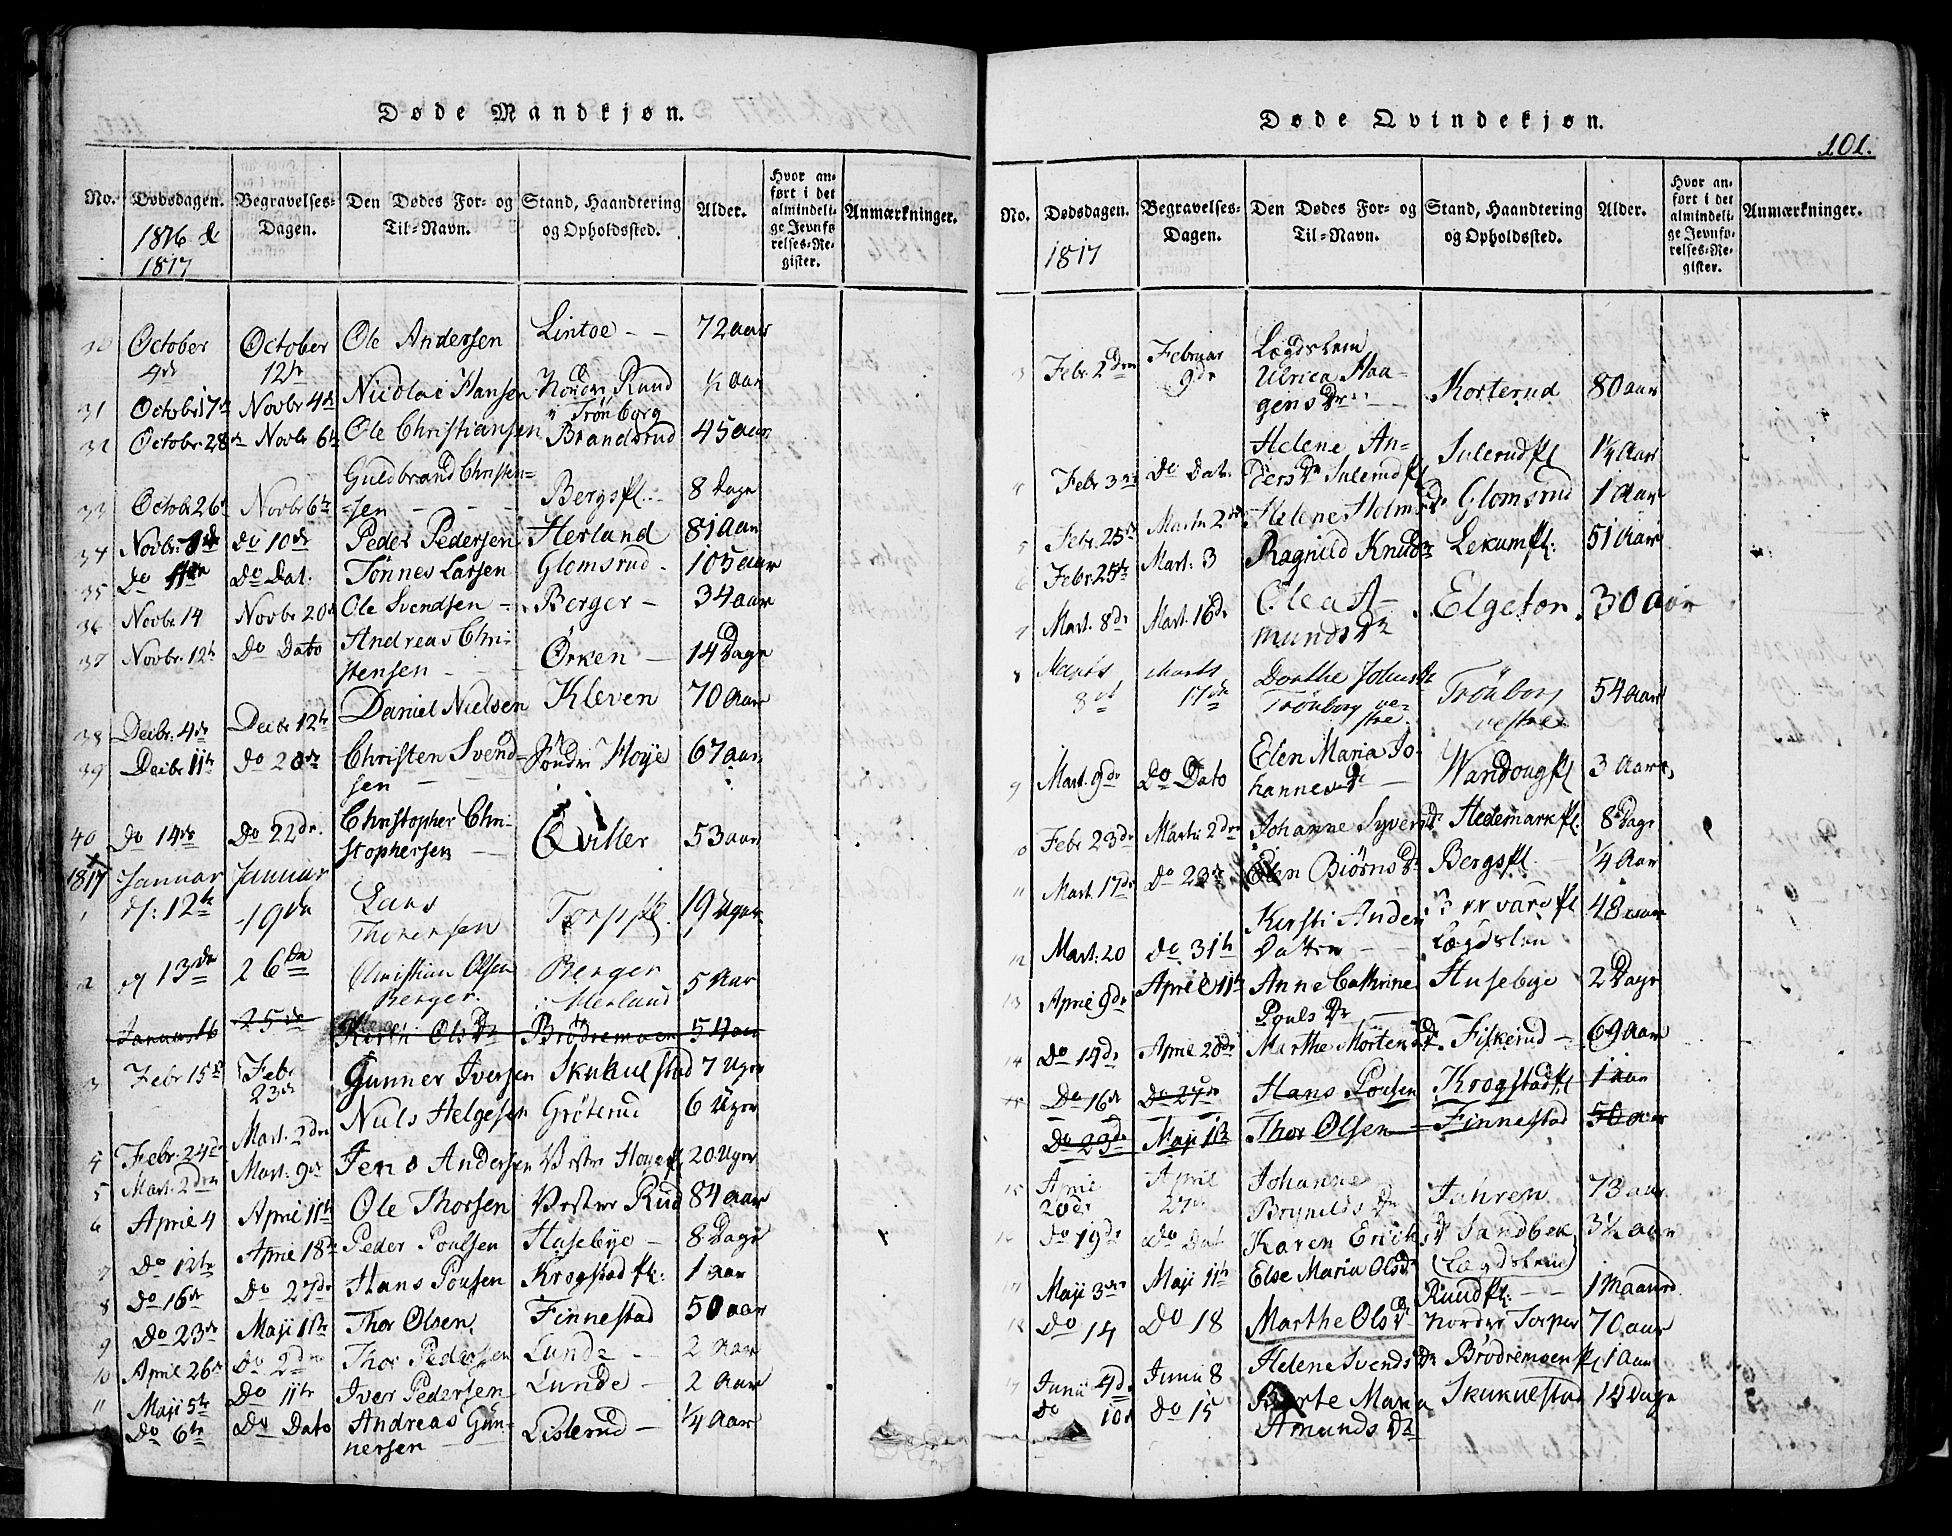 Døde Mandkjøn.
No. Dødsdagen. Begravelses-Dagen. Den Dødes For- og Til-Navn. Stand, Haandtering og Opholdssted. Alder. Hvor anført i det almindelige Jevnførelses-Register. Anmærkninger.
1816 &
1817
30 October 4de October 12te Ole Andersen Lintoe 72 aar
31 Octobr 17de Novbr 4de Nicolai Hansen Nordre Ruud i Trönborg ½ aar
32 Octobr 28de Novbr 6te Ole Christiansen Brandsrud 45 aar
33 Octob: 26de Novbr 6te Guldbrand Christensen Bergspl. 8 Dage
34 Novbr. Do 10de Peder Pedersen Herland 81 Aar
35 Do 11te Do Dat. Tönnes Larsen Glomsrud 105 aar
36 Novbr 14 Novbr 20de Ole Svendsen Berger 34 aar
37 Novbr. 12te Do Dato Andreas Christensen Örken 14 Dage
38 Decbr: 4de Decbr 12te Daniel Nielsen Kleven 70 Aar
39 Decbr 11te Do 20de Christen Svendsen Söndre Hoÿe 67 aar
40 Do 14de Do 22de Christopher Christophersen Qviller 53 aar
1817 Januar Januar
1 d: 12te 19de Lars Thoresen Torppl. 19 Uger
2 d 13de 26de Christian Olsen Berger Berger i Herland 5 Aar
Januar 16 25de Kirsti Olsdr Brödremoen 54 aar
3 Febr 15de Febr 23de Gunner Iversen Skukuelstad 7 Uger
4 Febr. 24de Mart. 2den Niels Helgesen Gröterud 6 Uger
5 Mart. 2den Mart. 9de Jens Andersen Vestre Hoÿe pl 20 Uger
6 April 4 April 11te Ole Thorsen Vestre Rud 84 aar
7 Do 12te April 18de Peder Poulsen Husebye 8 Dage
8 Do 16de Do 27de Hans Poulsen Krogstad pl. 1 aar
9 Do 23de Maji 1ste Thor Olsen Finnestad 50 aar
10 April 26de Do 2den Thor Pedersen Lunde 2 Aar
11 Maji 5te Do 11te Iver Pedersen Lunde 2 Aar
Do 6te Do Dato Andreas Gunnersen Lislerud ¼ Aar
Døde Qvindekjøn.
101.
No. Dødsdagen. Begravelses-Dagen. Den Dødes For- og Til-Navn. Stand, Haandtering og Opholdssted. Alder. Hvor anført i det almindelige Jevnførelses-Register. Anmærkninger.
1817
3 Febr. 2den Februar 9de Lægdslem Ulrica Haagensdr Korterud 80 aar
4 Febr 3die Do Dat. Helene Andersdr Sulerudpl Sulerudpl 1¼ Aar
5 Febr. 25de Martii 2den Helene Holmsdr Glomsrud 1 Aar
6 Febr. 25de Mart: 3 Ragnild Knudsdr Lekumpl: 51 Aar
7 Mart. 8de Mart. 16de Olea Amundsdr Elgeton 30 Aar
8 Marts 8de Marts 17de Dorthe Johnsdr Trönborg vestre Trönborg vestre 54 aar
9 Mart. 9de Do Dato Elen Maria Johannesdr Wandougpl 3 Aar
10 Febr 23de Martii 2den Johanne Syversdr Hedemarkpl. 8 Dage
11 Mart. 17de Do 23de Elen Biörnsdr Bergspl. ¼ Aar
12 Mart: 20 Do 31te Kirsti Andersdatter pl Lægdslem 48 aar
13 April 9de April 11te Anne Cathrine Poulsdr Husebye 2 Dage
14 Do 19de April 20de Marthe Mortensdr Fiskerud 69 Aar
15 Do 16de Do 27de Hans Poulsen Krogstadpl 1 aar
Do 23de Maji 1ste Thor Olsen Finnestad 50 aar
15 April 20de April 27de Johanne Brynildsdr Jahren 73 aar
16 Do 19de Do Dat Karen Ericksdr Sandbek (Lægdslem) 3½ aar
17 Maji 3die Maji 11te Else Maria Olsdr Ruudpl. 1 maaned
18 Do 14 Do 18 Marthe Olsdr Nordre Torper 70 aar
19 Junii 4de Junii 8 Helene Svendsdr Brödremoen pl 1 Aar
Do 10de Do 15 Berte Maria Amundsdr Skukuelstad 14 Dage